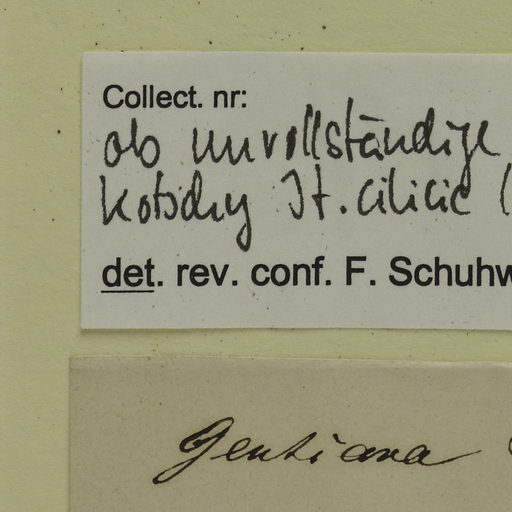 Collect. nr:
ob unvollständige
Kotschy It. cilicic (
det. rev. conf. F. Schuhw
Gentiana